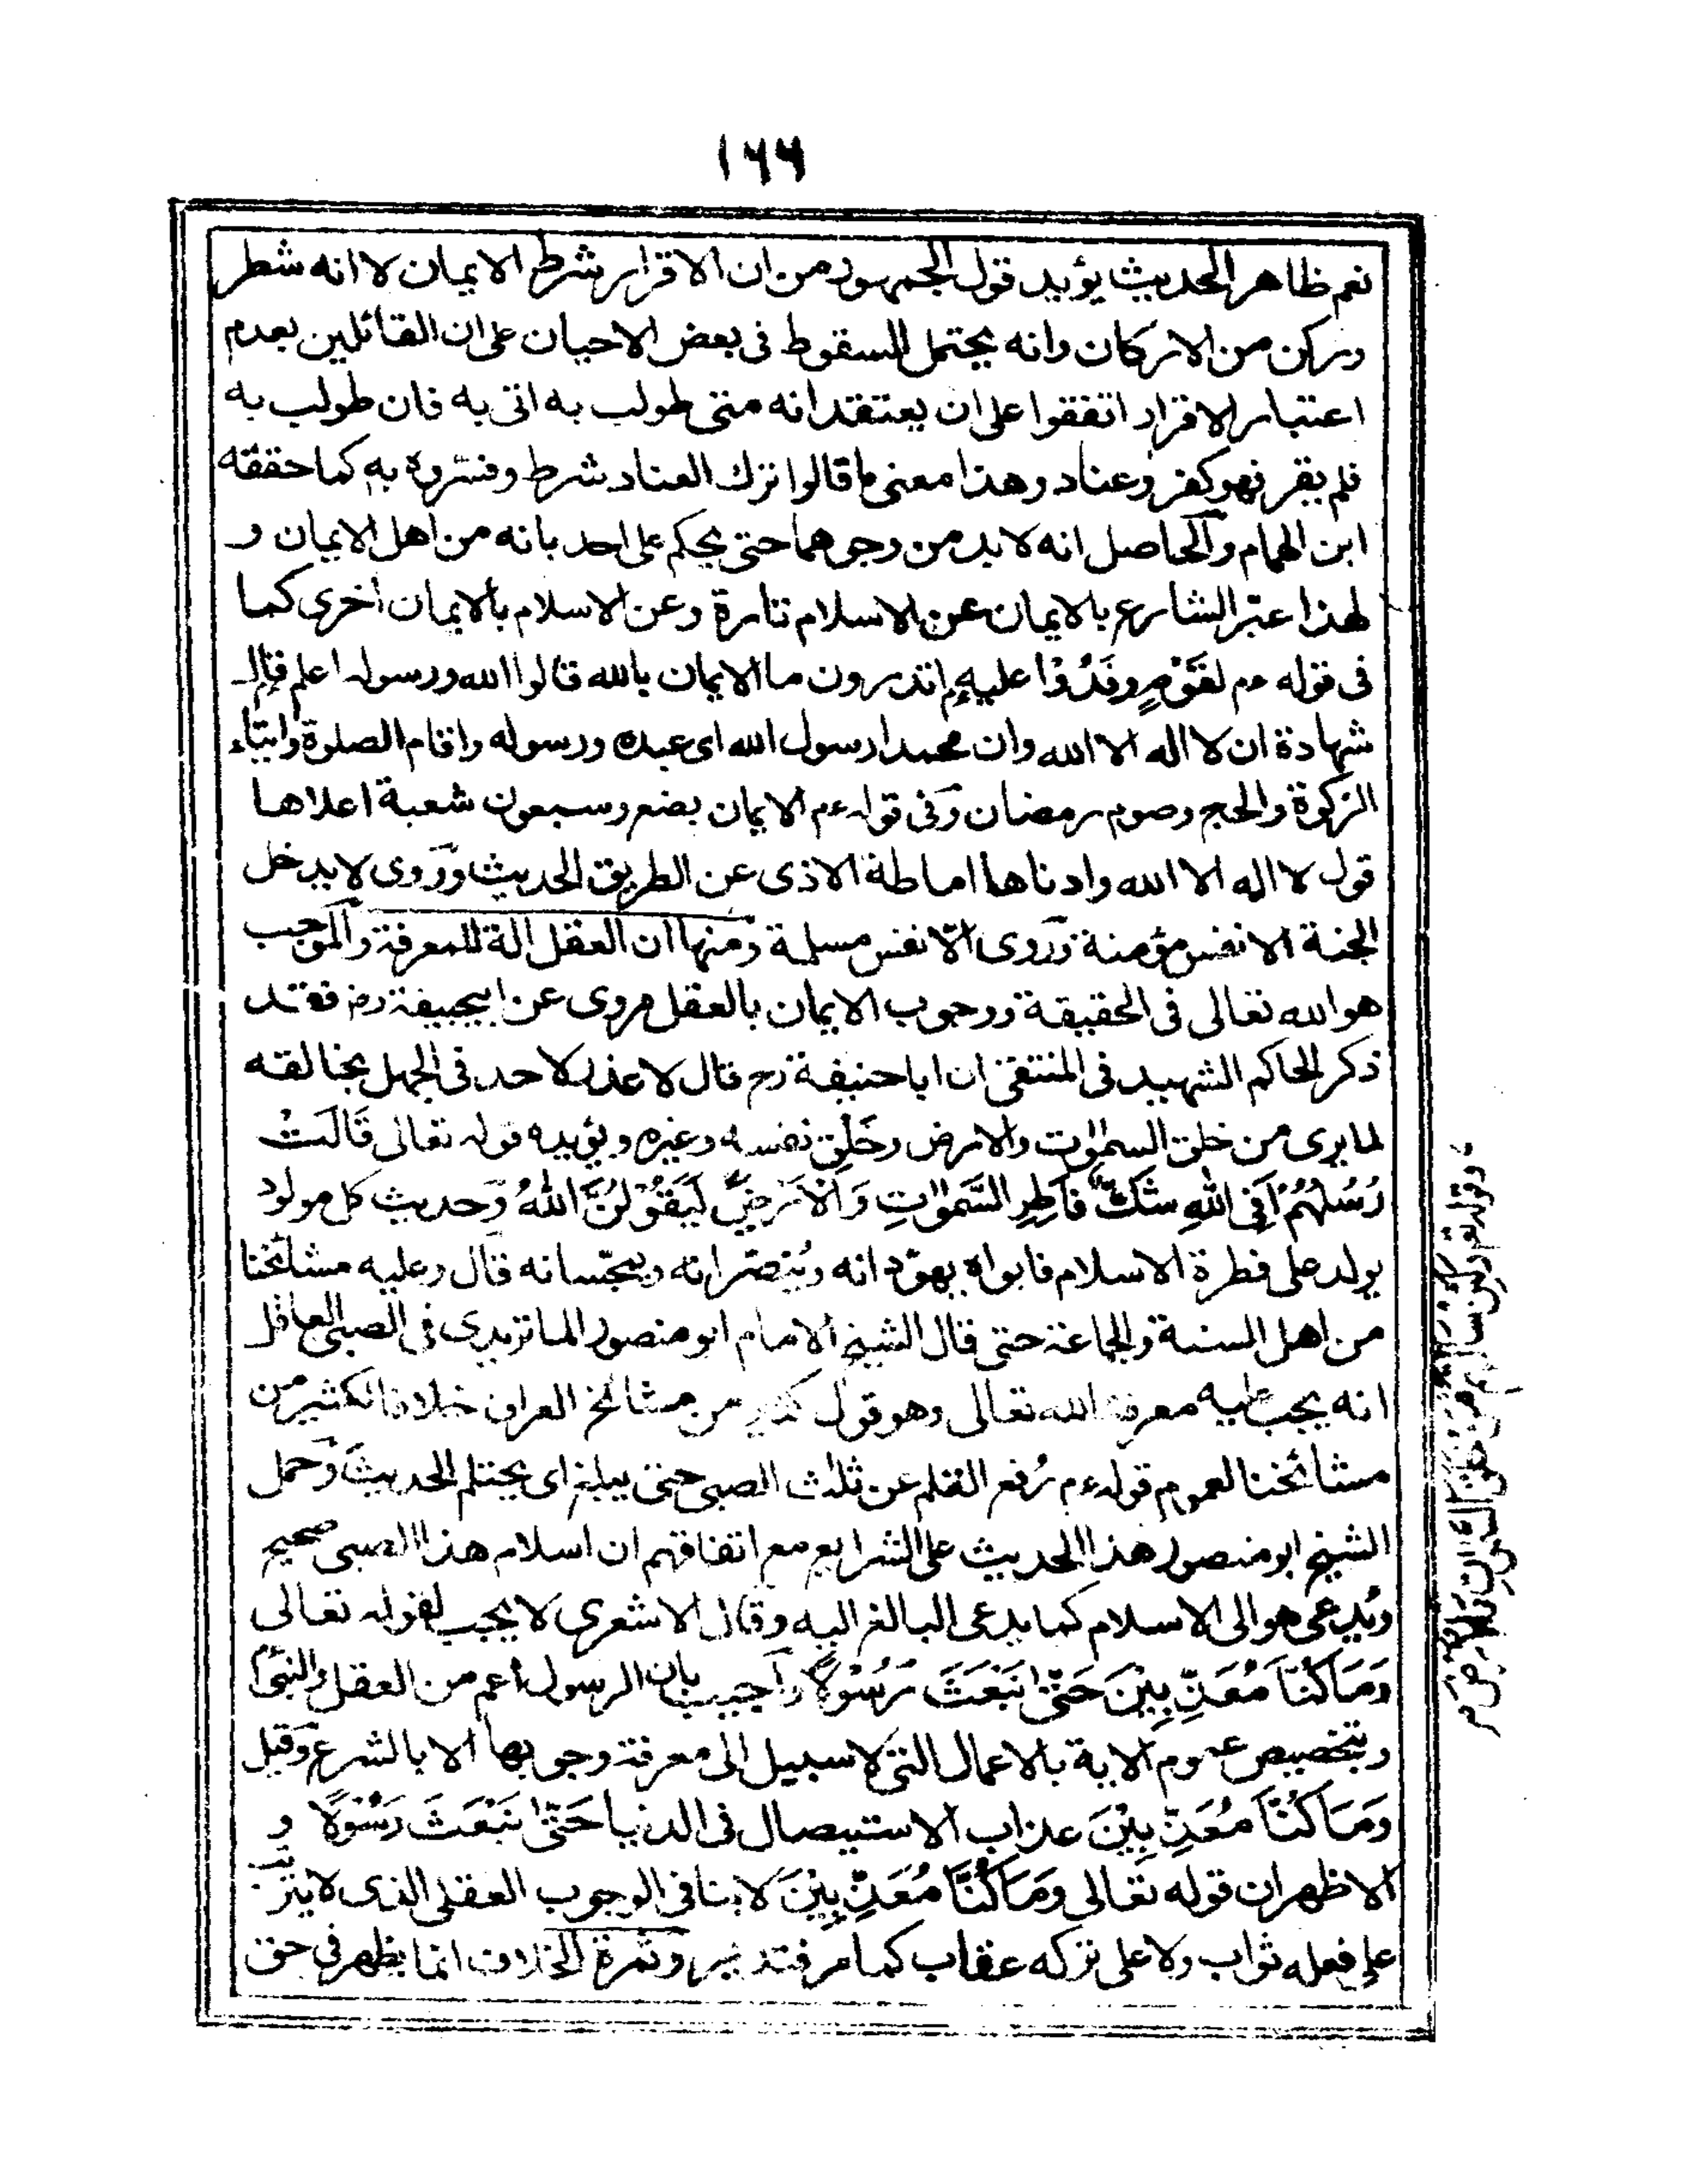 ١٦٦
نعم ظاهر الحديث يؤيد قول الجمهور من ان الاقرار شرط الايمان لا انه شطر
وركن من الاركان وانه يحتمل السقوط فى بعض الاحيان على ان القائلين بعدم
اعتبار الاقرار اتفقوا على ان يعتقد انه متى طولب به اتى به فان طولب به
فلم يقر فهو كفر وعناد وهذا معنى ما قالوا ترك العناد شرط وفسّروه به كما حققه
ابن الهمام والحاصل انه لا بد من وجوهما حتى يحكم على احد بانه من اهل الايمان و
لهذا عبّر الشارع بالايمان عن الاسلام تارة وعن الاسلام بالايمان اخرى كما
فى قوله عم لقَوْمٍ وفَدُوْا عليهم اتدرون ما الايمان بالله قالوا الله ورسوله اعلم فقال
شهادة ان لا اله الا الله وان محمدا رسول الله اى عبده ورسوله واقام الصلوة وايتاء
الزكوة والحج وصوم رمضان وفى قوله عم الايمان بضع وسبعون شعبة اعلاها
قول لا اله الا الله وادناها اماطة الاذى عن الطريق الحديث وروى لا يدخل
الجنة الا نفس مؤمنة وروى الّا نفس مسلمة ومنها ان العقل الة للمعرفة والموجب
هو الله تعالى فى الحقيقة ووجوب الايمان بالعقل مروى عن ابيحنيفة رض فقد
ذكر الحاكم الشهيد فى المنتقى ان ابا حنيفة رح قال لا عذر لاحد فى الجهل بخالقه
لما يرى من خلق السموات والارض وخَلْق نفسه وغيره ويؤيده قوله تعالى قَالَتْ
رُسُلُهُمْ اَفِى اللّٰهِ شَكٌّ فَاطِرِ السَّمٰوٰتِ وَالْاَرْضِ لَيَقُوْلُنَّ اللّٰهُ وحديث كل مولود
يولد على فطرة الاسلام فابواه يهوّدانه ويُنصّرانه ويمجّسانه قال وعليه مشائخنا
من اهل السنة والجماعة حتى قال الشيخ الامام ابو منصور الماتريدى فى الصبى العاقل
انه يجب عليه معرفة الله تعالى وهو قول كثير من مشائخ العراق خلافا لكثير من
مشائخنا لعموم قوله عم رُفع القلم عن ثلاث الصبى حتى يبلغ اى يحتلم الحديث وحمل
الشيخ ابو منصور هذا الحديث على الشرايع مع اتفاقهم ان اسلام هذا الصبى صحيح
ويُدعى هو الى الاسلام كما يدعى البالغ اليه وقال الاشعرى لا يجب لقوله تعالى
وَمَا كُنَّا مُعَذِّبِيْنَ حَتّٰى نَبْعَثَ رَسُوْلًا واجيب بان الرسول اعم من العقل والنبى
وبتخصيص عموم الاية بالاعمال التى لا سبيل الى معرفة وجوبها الا بالشرع وقيل
وَمَا كُنَّا مُعَذِّبِيْنَ عذاب الاستيصال فى الدنيا حَتّٰى نَبْعَثَ رَسُوْلًا و
الاظهر ان قوله تعالى وَمَا كُنَّا مُعَذِّبِيْنَ لا ينافى الوجوب العقلى الذى لا يترتب
على فعله ثواب ولا على تركه عقاب كما مر فتدبر وثمرة الخلاف انما يظهر فى حق
وقوله تع ولئن سالتهم من خلق السموات والارض م